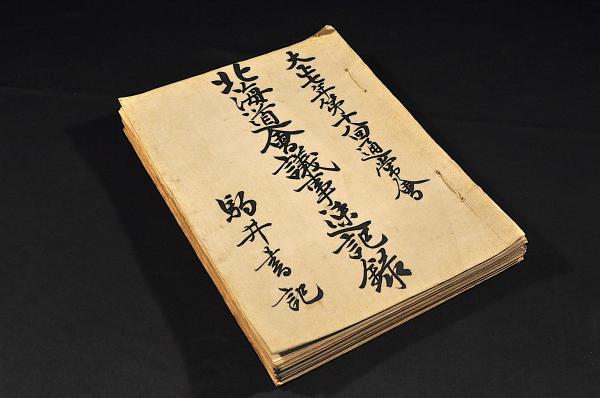 大正七年第十八回通常會
北海道會議事速記録
駒井書記